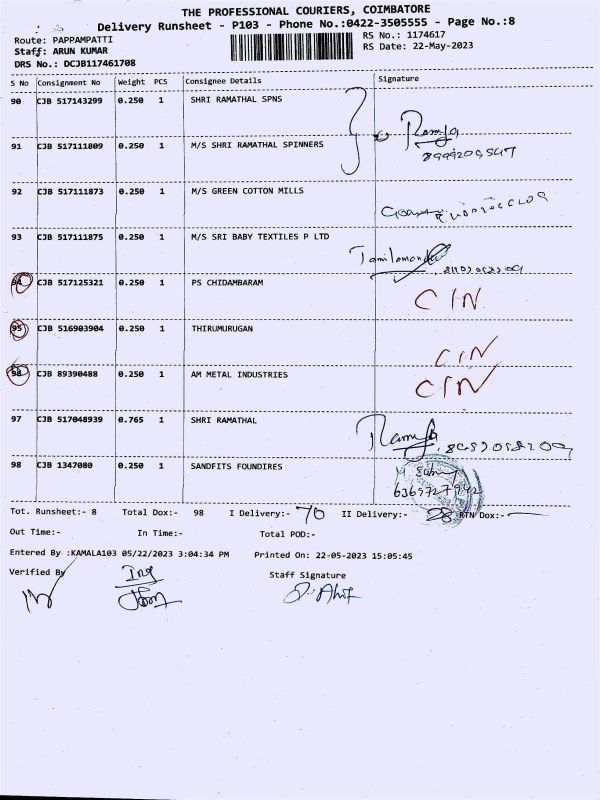 THE PROFESSIONAL COURIERS, COIMBATORE
Delivery Runsheet - P103 - Phone No.:0422-3505555 - Page No.:8
Route: PAPPAMPATTI
RS No.: 1174617
Staff: ARUN KUMAR
RS Date: 22-May-2023
DRS No.: DCJB117461708
S No Consignment No Weight PCS Consignee Details Signature
90 CJB 517143299 0.250 1 SHRI RAMATHAL SPNS
91 CJB 517111809 0.250 1 M/S SHRI RAMATHAL SPINNERS
92 CJB 517111873 0.250 1 M/S GREEN COTTON MILLS
93 CJB 517111875 0.250 1 M/S SRI BABY TEXTILES P LTD
94 CJB 517125321 0.250 1 PS CHIDAMBARAM CIN
95 CJB 516903904 0.250 1 THIRUMURUGAN CIN
96 CJB 89390488 0.250 1 AM METAL INDUSTRIES CIN
97 CJB 517048939 0.765 1 SHRI RAMATHAL
98 CJB 1347080 0.250 1 SANDFITS FOUNDIRES
Tot. Runsheet:- 8 Total Dox:- 98 I Delivery:- 70 II Delivery:- 28 RTN Dox:-
Out Time:- In Time:- Total POD:-
Entered By :KAMALA103 05/22/2023 3:04:34 PM Printed On: 22-05-2023 15:05:45
Verified By Staff Signature